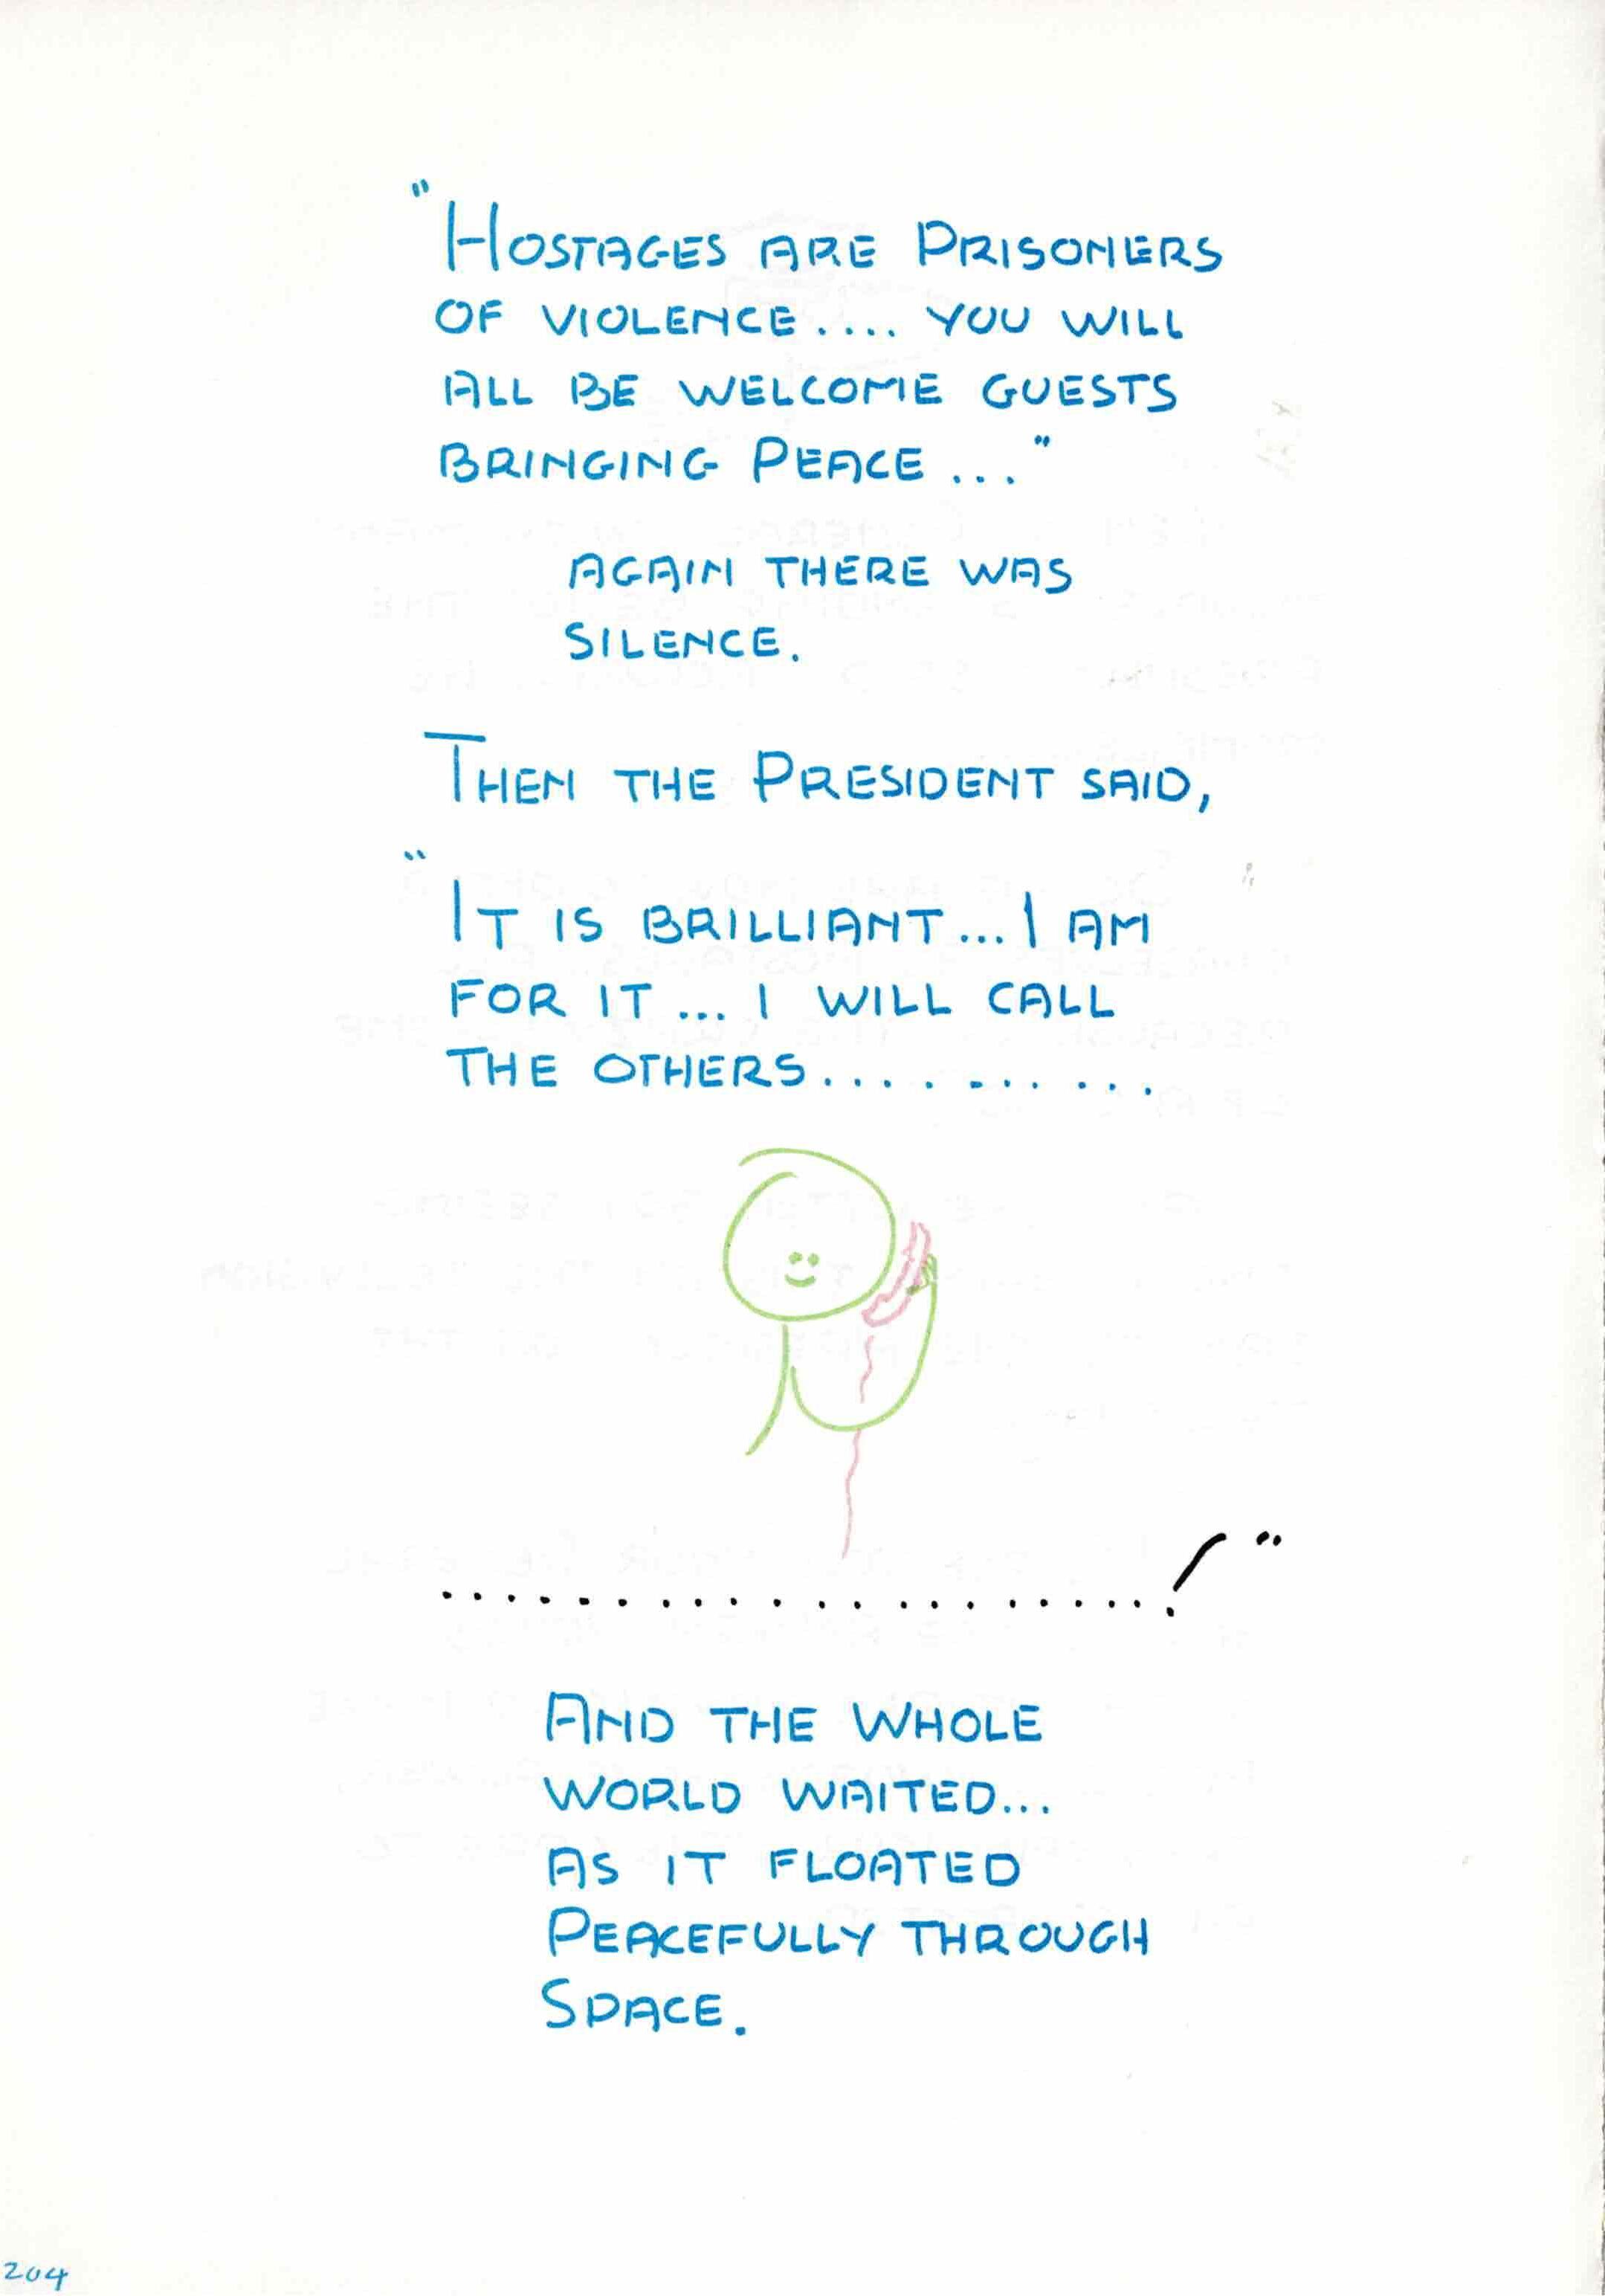 "HOSTAGES ARE PRISONERS
OF VIOLENCE.... YOU WILL
ALL BE WELCOME GUESTS
BRINGING PEACE ..."
AGAIN THERE WAS
SILENCE.
THEN THE PRESIDENT SAID,
"IT IS BRILLIANT... I AM
FOR IT ... I WILL CALL
THE OTHERS..........
.....................!"
AND THE WHOLE
WORLD WAITED...
AS IT FLOATED
PEACEFULLY THROUGH
SPACE.
204